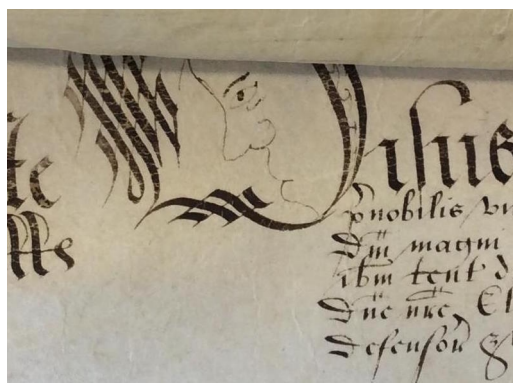 Visus
te p̄nobilis vi
dm̄ magni
ib̄m tent d
dn̄e nr̄e El
defensor̄ &